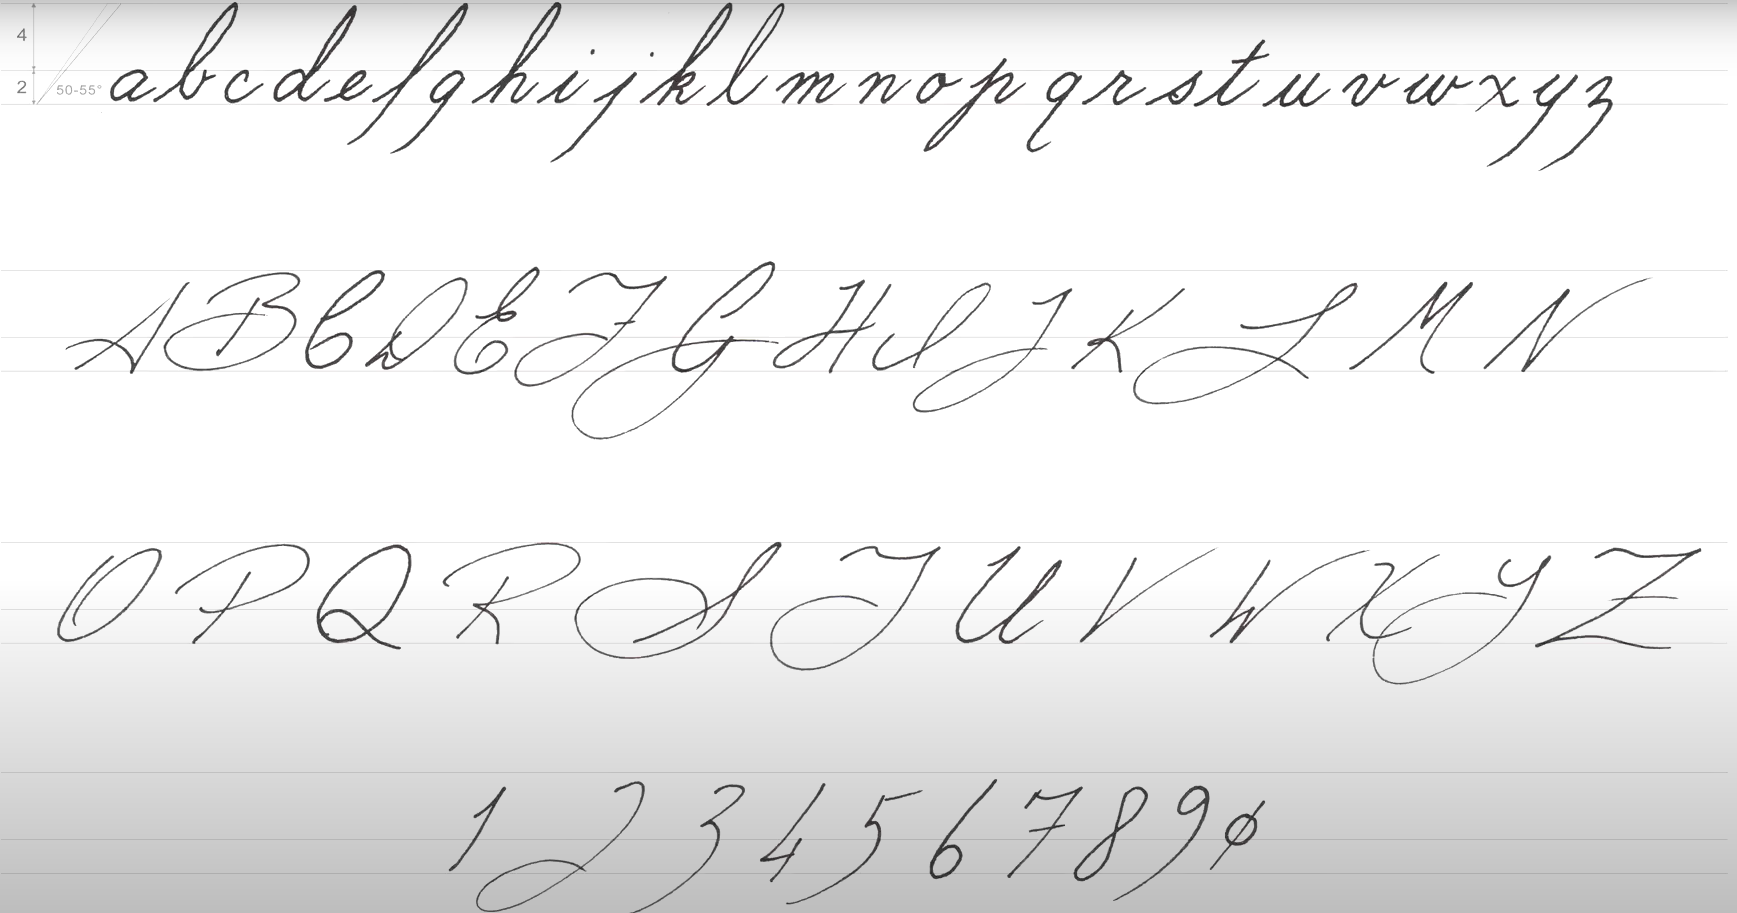 4
2
50-55°
a b c d e f g h i j k l m n o p q r s t u v w x y z
A B C D E F G H I J K L M N
O P Q R S T U V W X Y Z
1 2 3 4 5 6 7 8 9 0